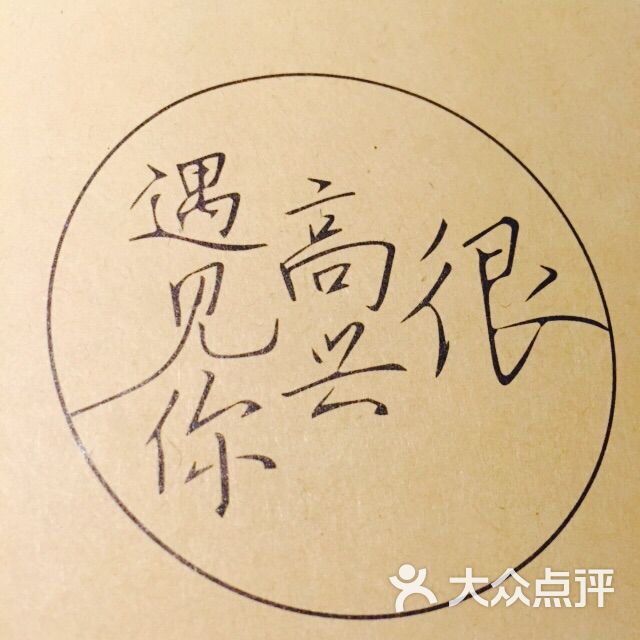 很
高兴
遇见你
大众点评